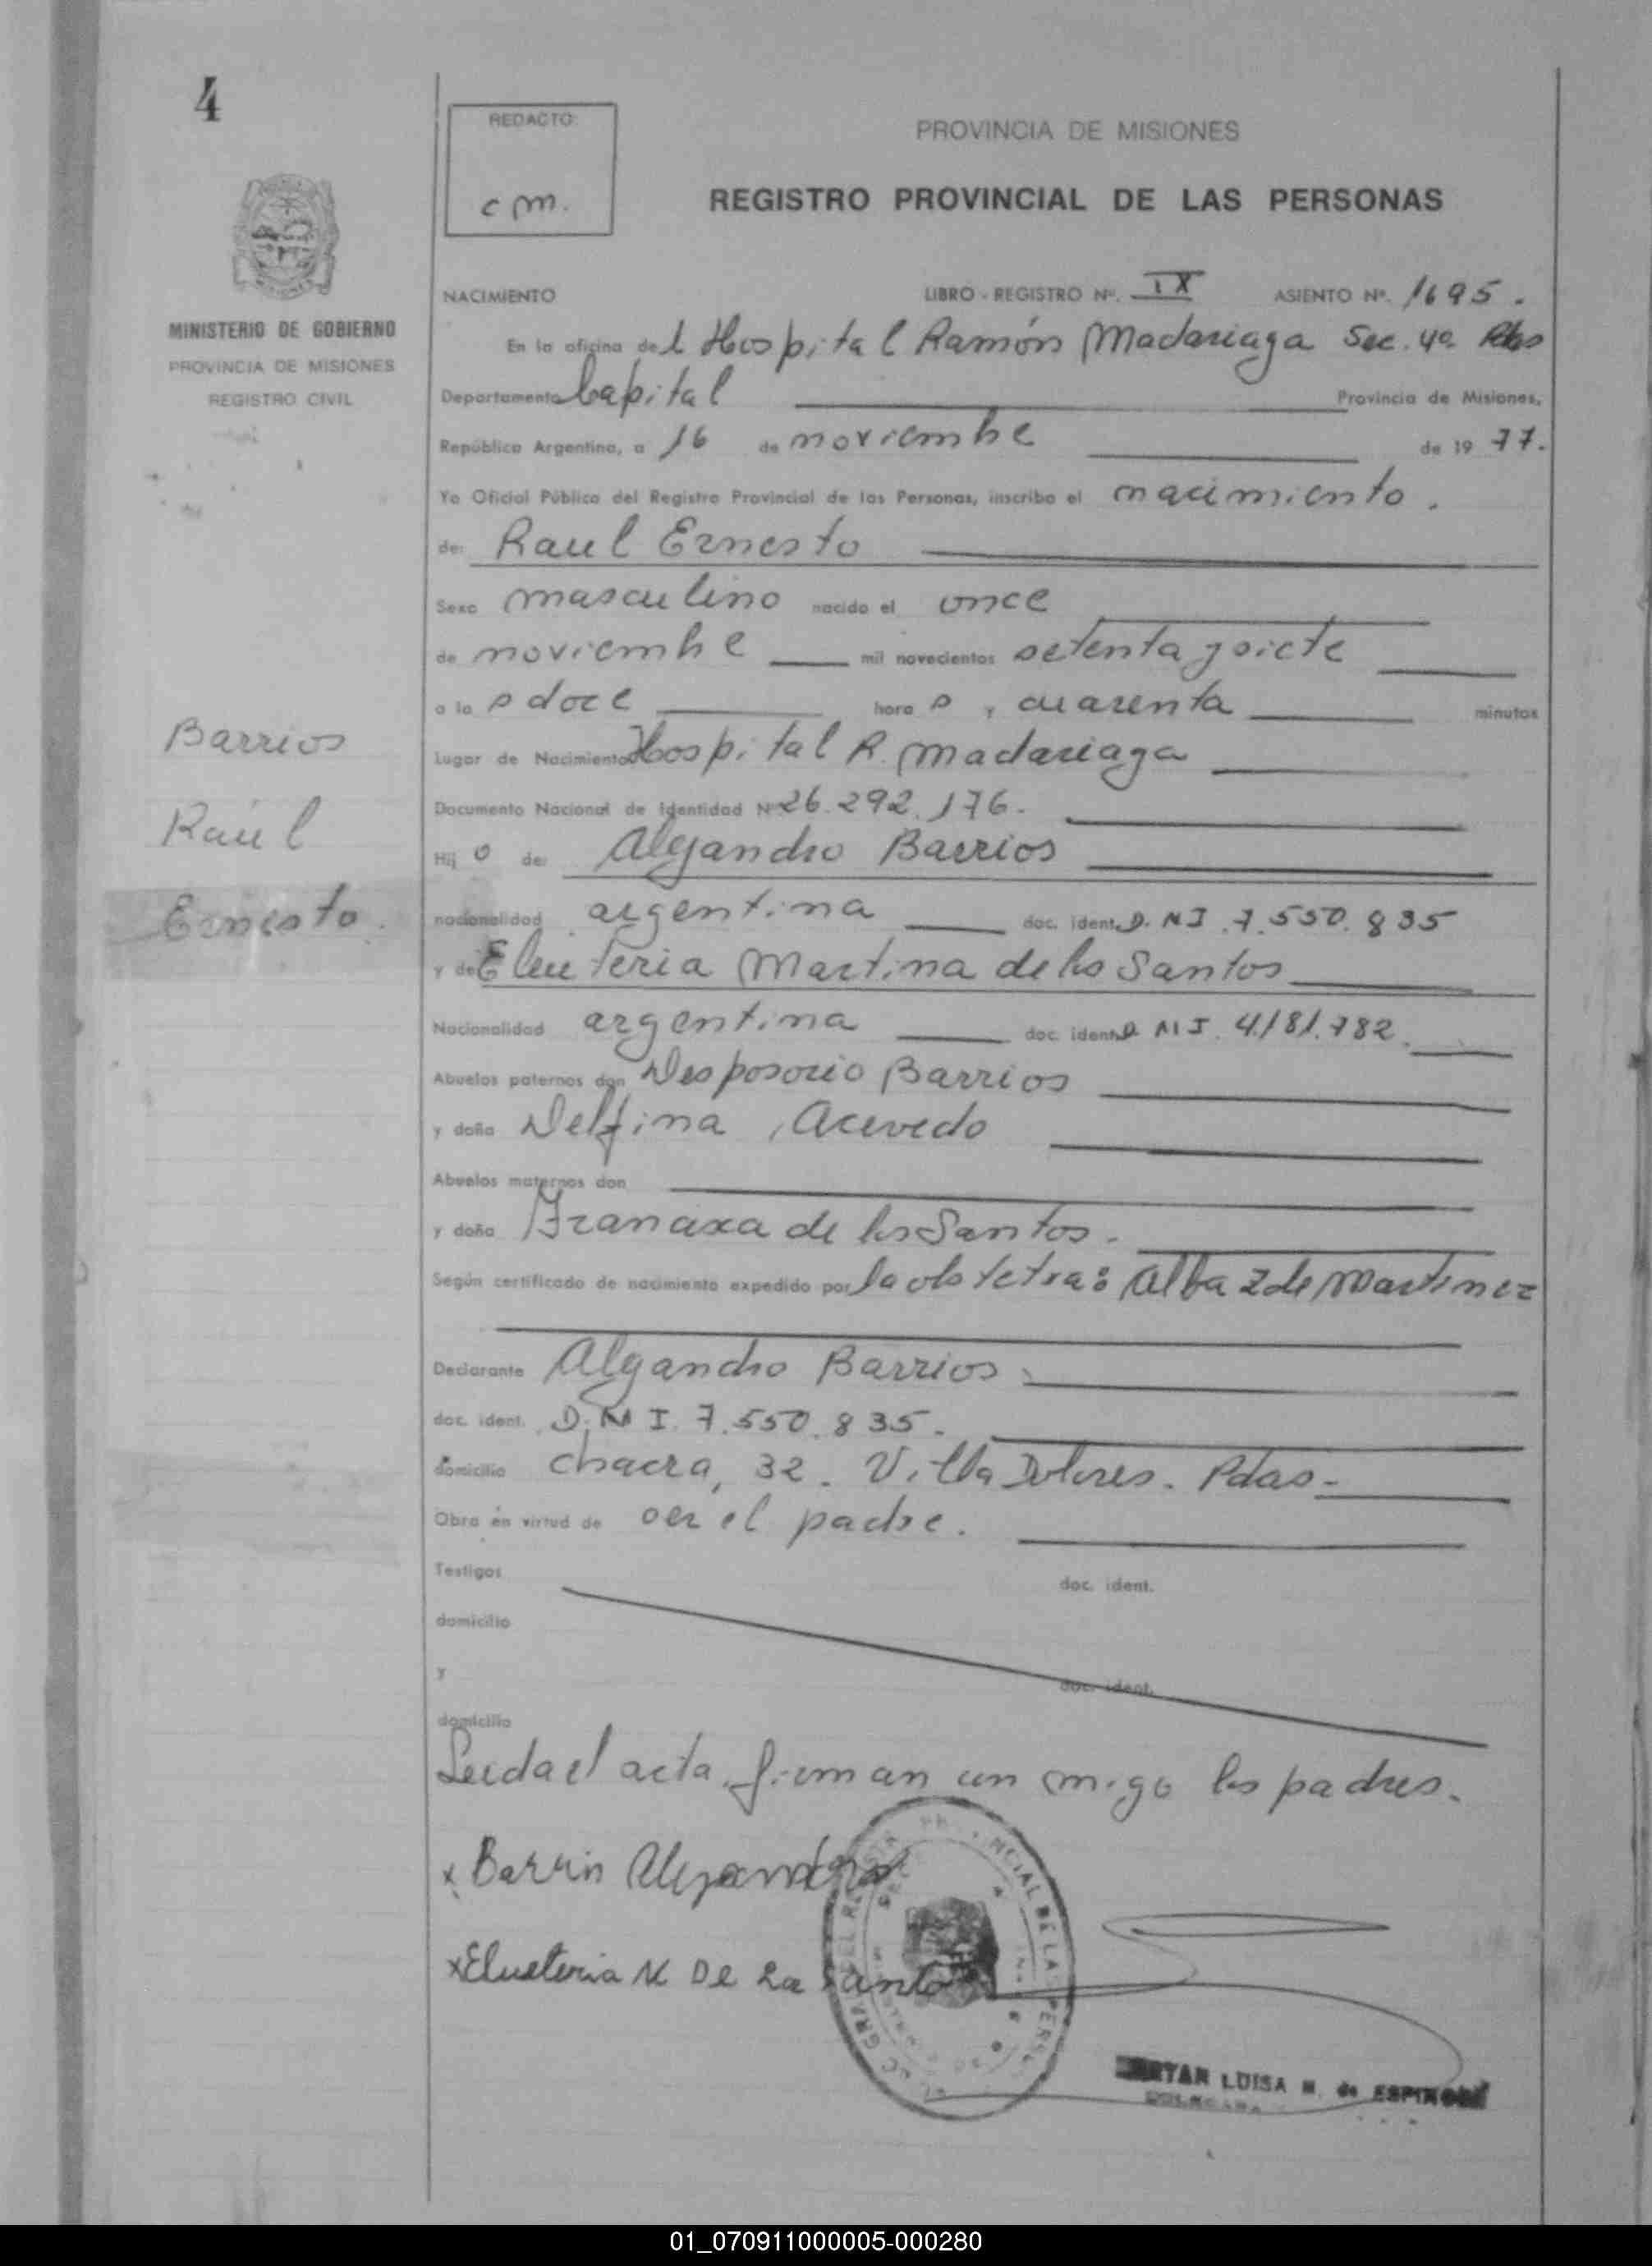 4
REDACTO:
c m.
PROVINCIA DE MISIONES
REGISTRO PROVINCIAL DE LAS PERSONAS
MINISTERIO DE GOBIERNO
PROVINCIA DE MISIONES
REGISTRO CIVIL
NACIMIENTO LIBRO - REGISTRO Nº. IX ASIENTO Nº. 1695.
En la oficina del Hospital Ramón Madariaga Sec. 4a.
Departamento Capital Provincia de Misiones,
República Argentina, a 16 de noviembre de 1977.
Yo Oficial Público del Registro Provincial de las Personas, inscribo el nacimiento.
de: Raul Ernesto
Sexo masculino nacido el once
de noviembre mil novecientos setenta y siete
a las doce horas, cuarenta minutos
Lugar de Nacimiento Hospital R. Madariaga
Documento Nacional de Identidad Nº 26.292.176.
Hijo de: Alejandro Barrios
nacionalidad argentina doc. ident. D.N.I. 7.550.835
y de Eleuteria Martina de los Santos
Nacionalidad argentina doc. ident. D.N.I. 4.181.782.
Abuelos paternos don Desposorio Barrios
y doña Delfina Acevedo
Abuelos maternos don
y doña de los Santos.
Según certificado de nacimiento expedido por la obstetra: Alba Z de Martinez
Declarante Alejandro Barrios
doc. ident. D.N.I. 7.550.835.
domicilio chacra, 32. Villa Dolores. Pdas-
Obra en virtud de ser el padre.
Testigos doc. ident.
domicilio
y doc. ident.
domicilio
Leida el acta, firman conmigo los padres.
x Barrio Alejandro
x Elueteria M De La Santo
LUISA M. de ESPINOSA
Barrios
Raúl
Ernesto.
01_070911000005-000280